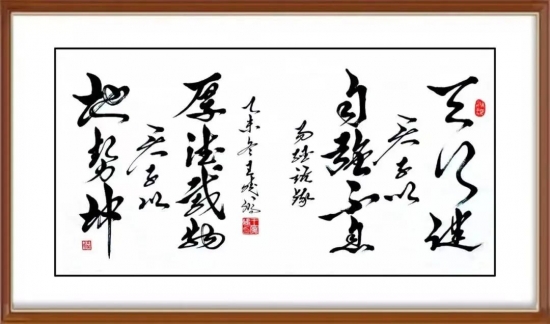 天行健
君子以
自强不息
易经语录
地势坤
君子以
厚德载物
乙未冬王